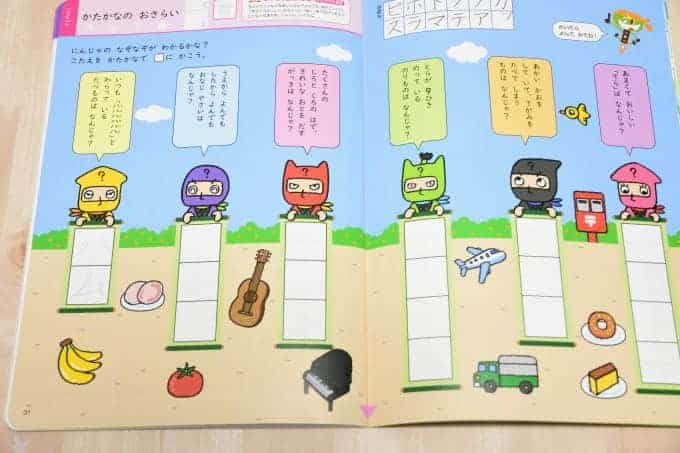 かたかなの おさらい
にんじゃの なぞなぞが わかるかな？
こたえを かたかなで □に かこう。
スラマテア
かいたら
よんで みてね！
あまくて おいしい
は なんじゃ？
あかい かおを
して いて、てがみを
たべて しまう
ものは なんじゃ？
とらが 9ひき
のって いる
のりものは なんじゃ？
たくさんの
しろと くろの はで、
きれいな おとを だす
がっきは なんじゃ？
うえから よんでも
したから よんでも
おなじ やさいは
なんじゃ？
いつも
わらって いる
たべものは なんじゃ？
?
?
?
?
?
?
〒
31